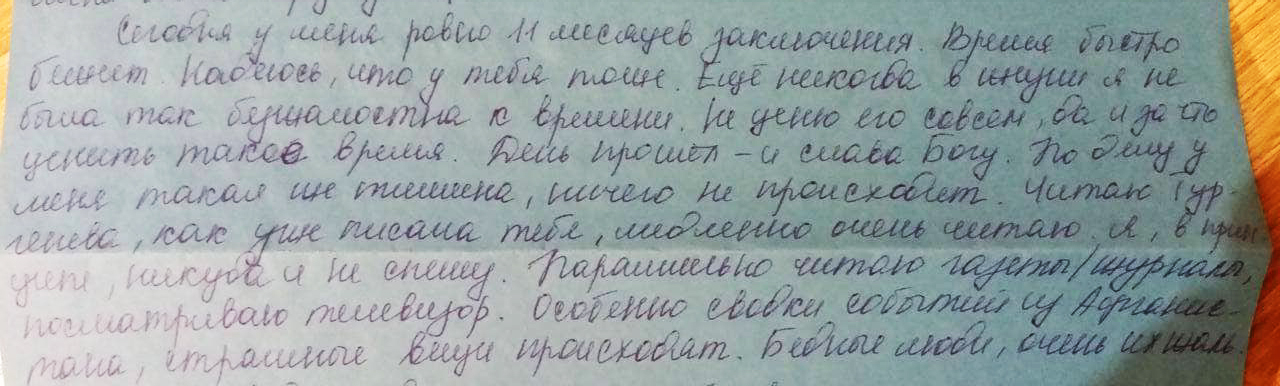 Сегодня у меня ровно 11 месяцев заключения. Время быстро
бежит. Надеюсь, что у тебя тоже. Ещё никогда в жизни я не
была так безжалостна к времени. Не ценю его совсем, да и за что
ценить такое время. День прошёл – и слава Богу. По делу у
меня такая же тишина, ничего не происходит. Читаю Тур-
генева, как уже писала тебе, медленно очень читаю. Я, в прин-
ципе, никуда и не спешу. Параллельно читаю газеты/журналы,
посматриваю телевизор. Особенно сводки событий из Афганис-
тана, страшные вещи происходят. Бедные люди, очень их жаль.